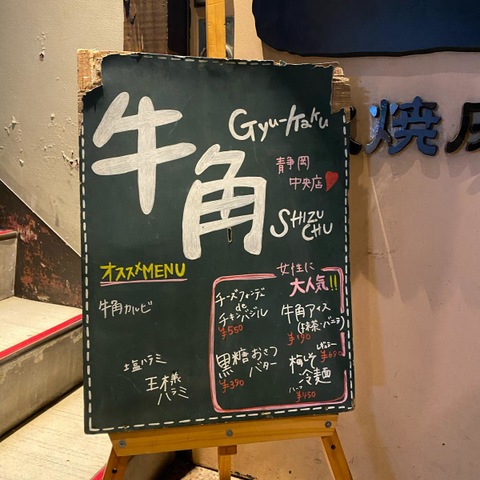 牛角
Gyu-Kaku
静岡
中央店
SHIZU
CHU
オススメMENU
牛角カルビ
塩ハラミ
王様
ハラミ
女性に
大人気!!
チーズフォンデュ
de
チキンバジル
¥550
牛角アイス
(抹茶・バニラ)
¥190
黒糖おさつ
バター
¥390
梅しそ
冷麺
レギュラー
¥690
ハーフ
¥450
焼